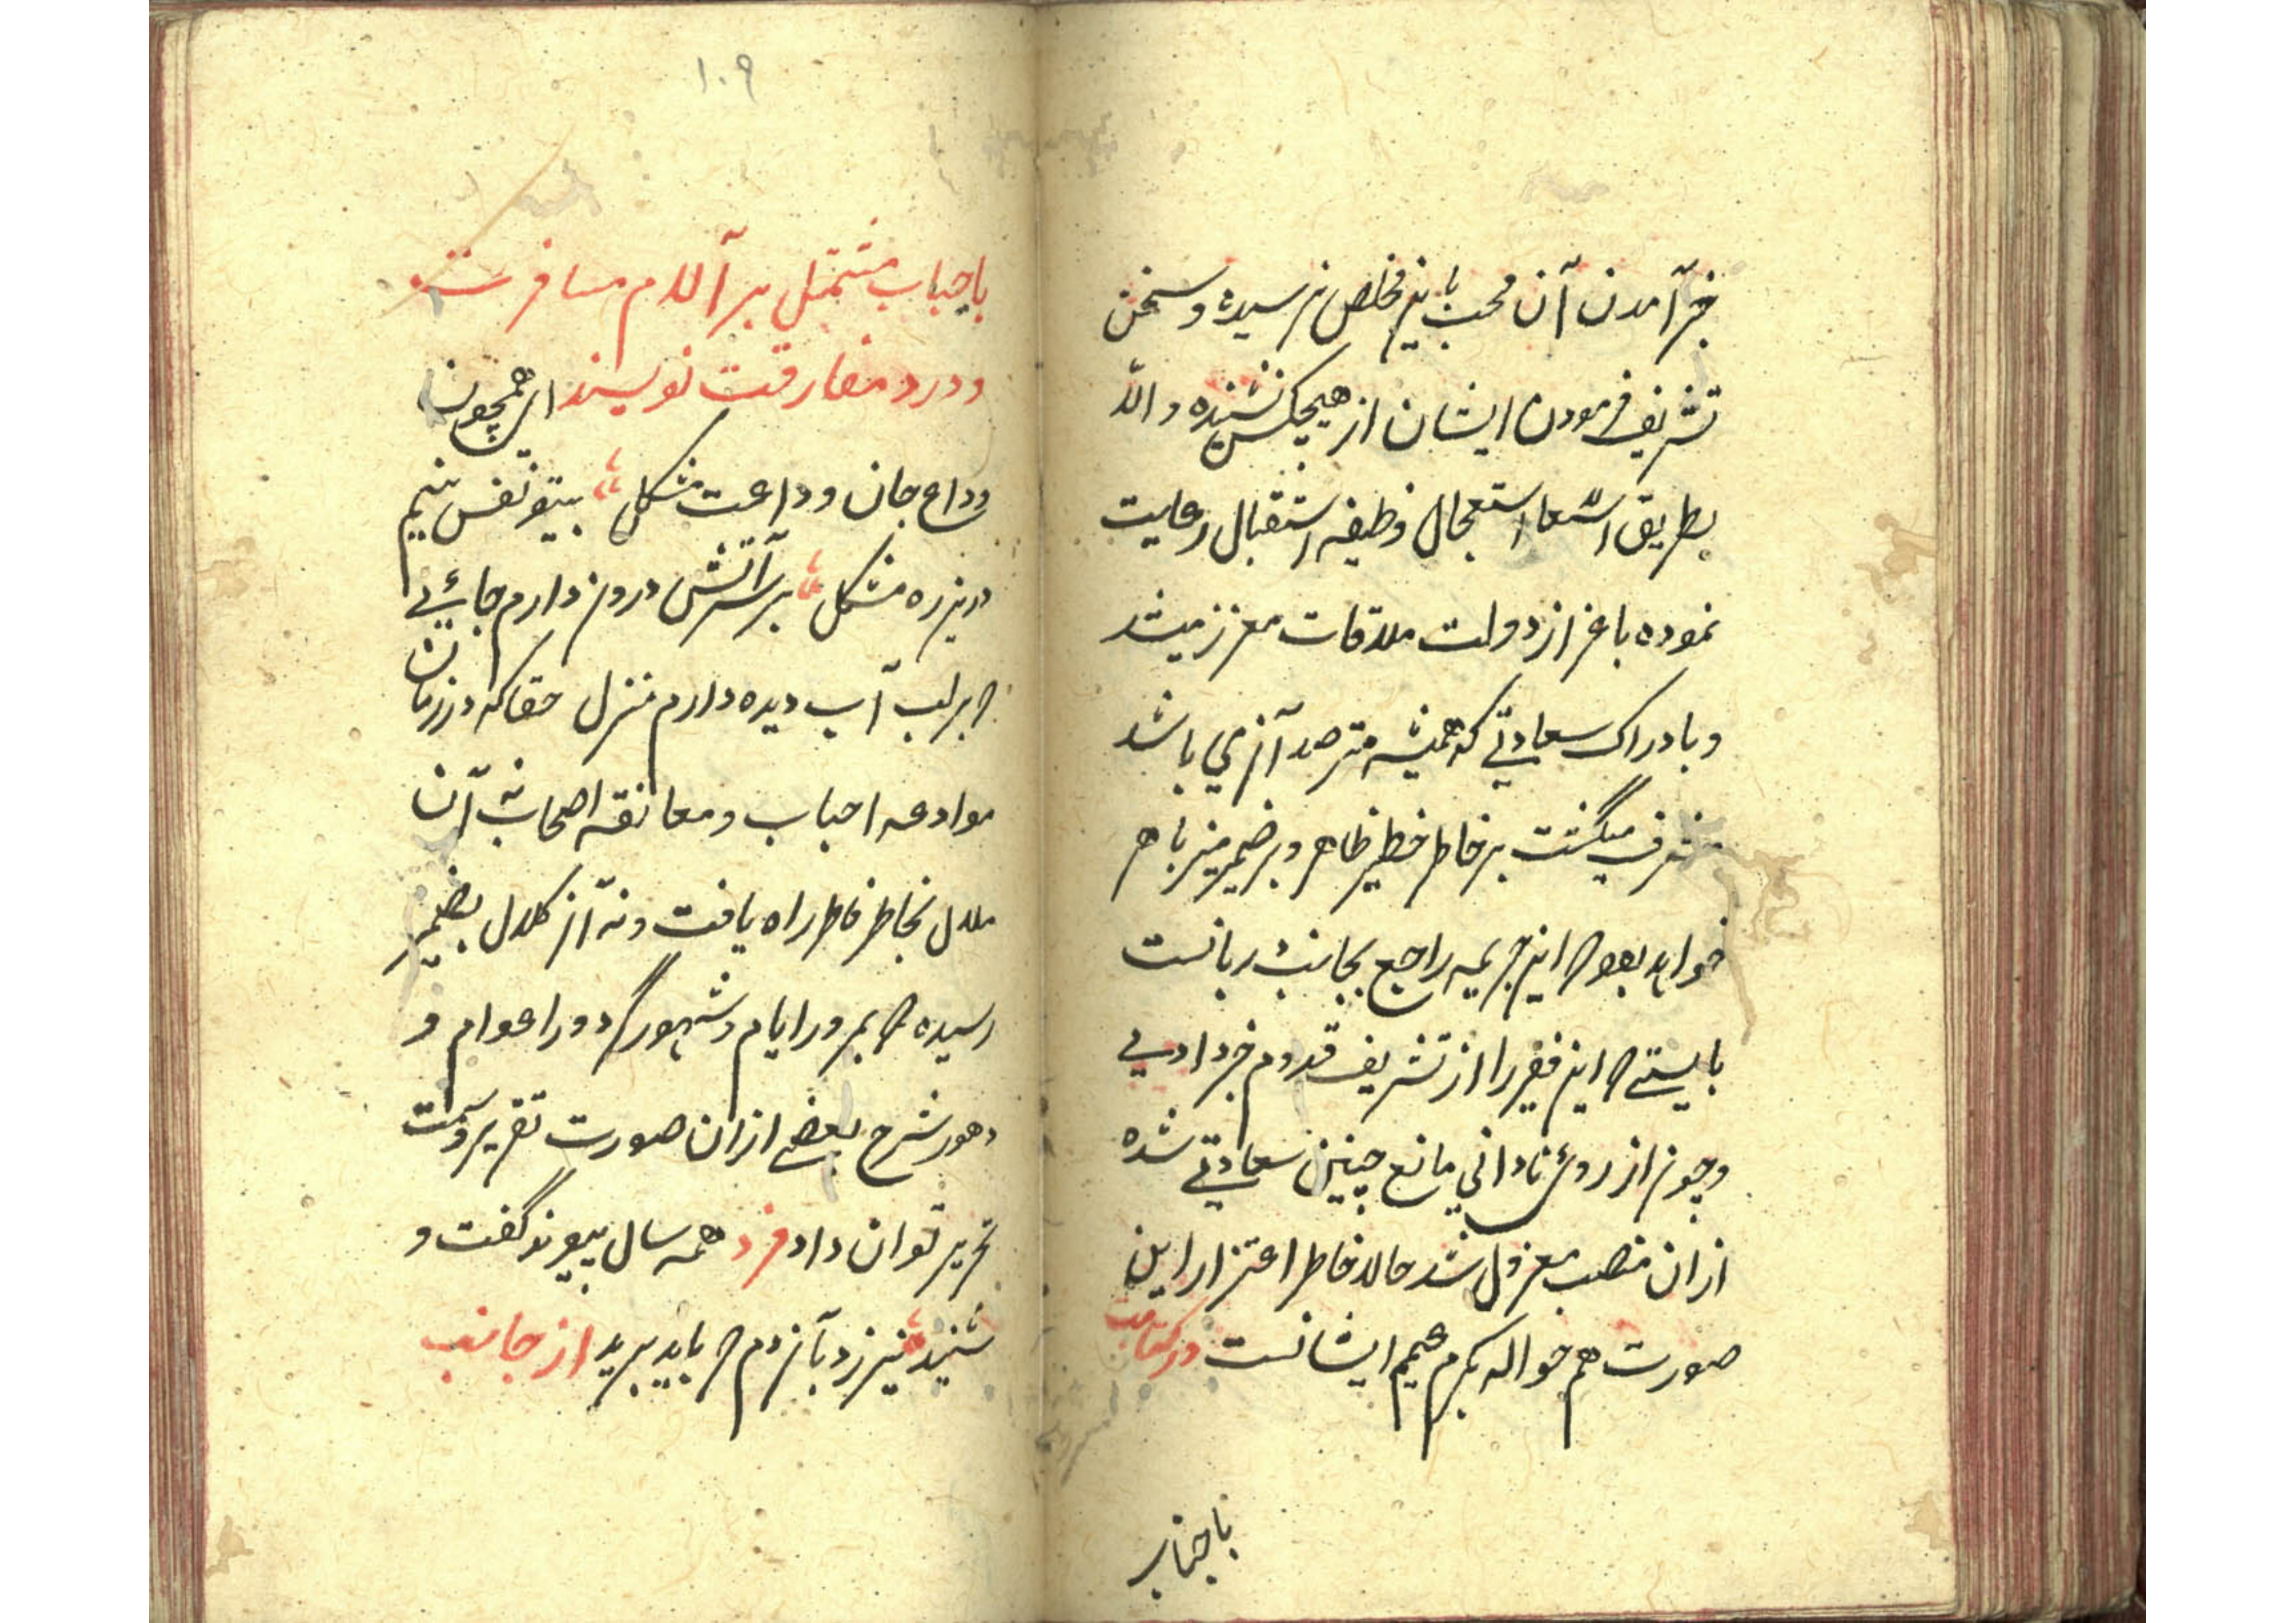 خبر آمدن آن محب باین مخلص نرسیده و سخن
تشریف فرمودن ایشان از هیچکس نشنیده والا
بطریق استعجال وظیفه استقبال رعایت
نموده باعزاز دولت ملاقات معزز میشد
و بادراک سعادتی که همیشه مترصد آن می باشد
مشرف میگشت بر خاطر خطیر ظاهر و بر ضمیر منیر باهر
خواهد بود که این جریمه راجع بجانب
بایستی که این فقیر را از تشریف قدوم خبر دادی
و چون از روی نادانی مانع چنین سعادتی شده
ازان منصب معزول شد حالا خاطر اعتذار این
صورت هم حواله بکرم عمیم ایشانست در کتابت
باحباب
۱۰۹
باحباب مشتمل بر آلام مسافرت
و درد مفارقت نویسند ای همچون
وداع جان وداعت مشکل بیتو نفس نیم
درین ره مشکل بر سر آتش درون دارم جائی
که بر لب آب دیده دارم منزل حقا که در زمان
موادعه احباب و معانقه اصحاب نه آن
ملال بخاطر فاطر راه یافت و نه آن کلال بضمیر
رسیده که بمرور ایام و شهور و دور اعوام و
دهور شرح بعضی ازان صورت تقریر و سمت
تحریر توان داد فرد همه سال پیوند گفت و
شنید نیرزد بآن دم که باید برید از جانب